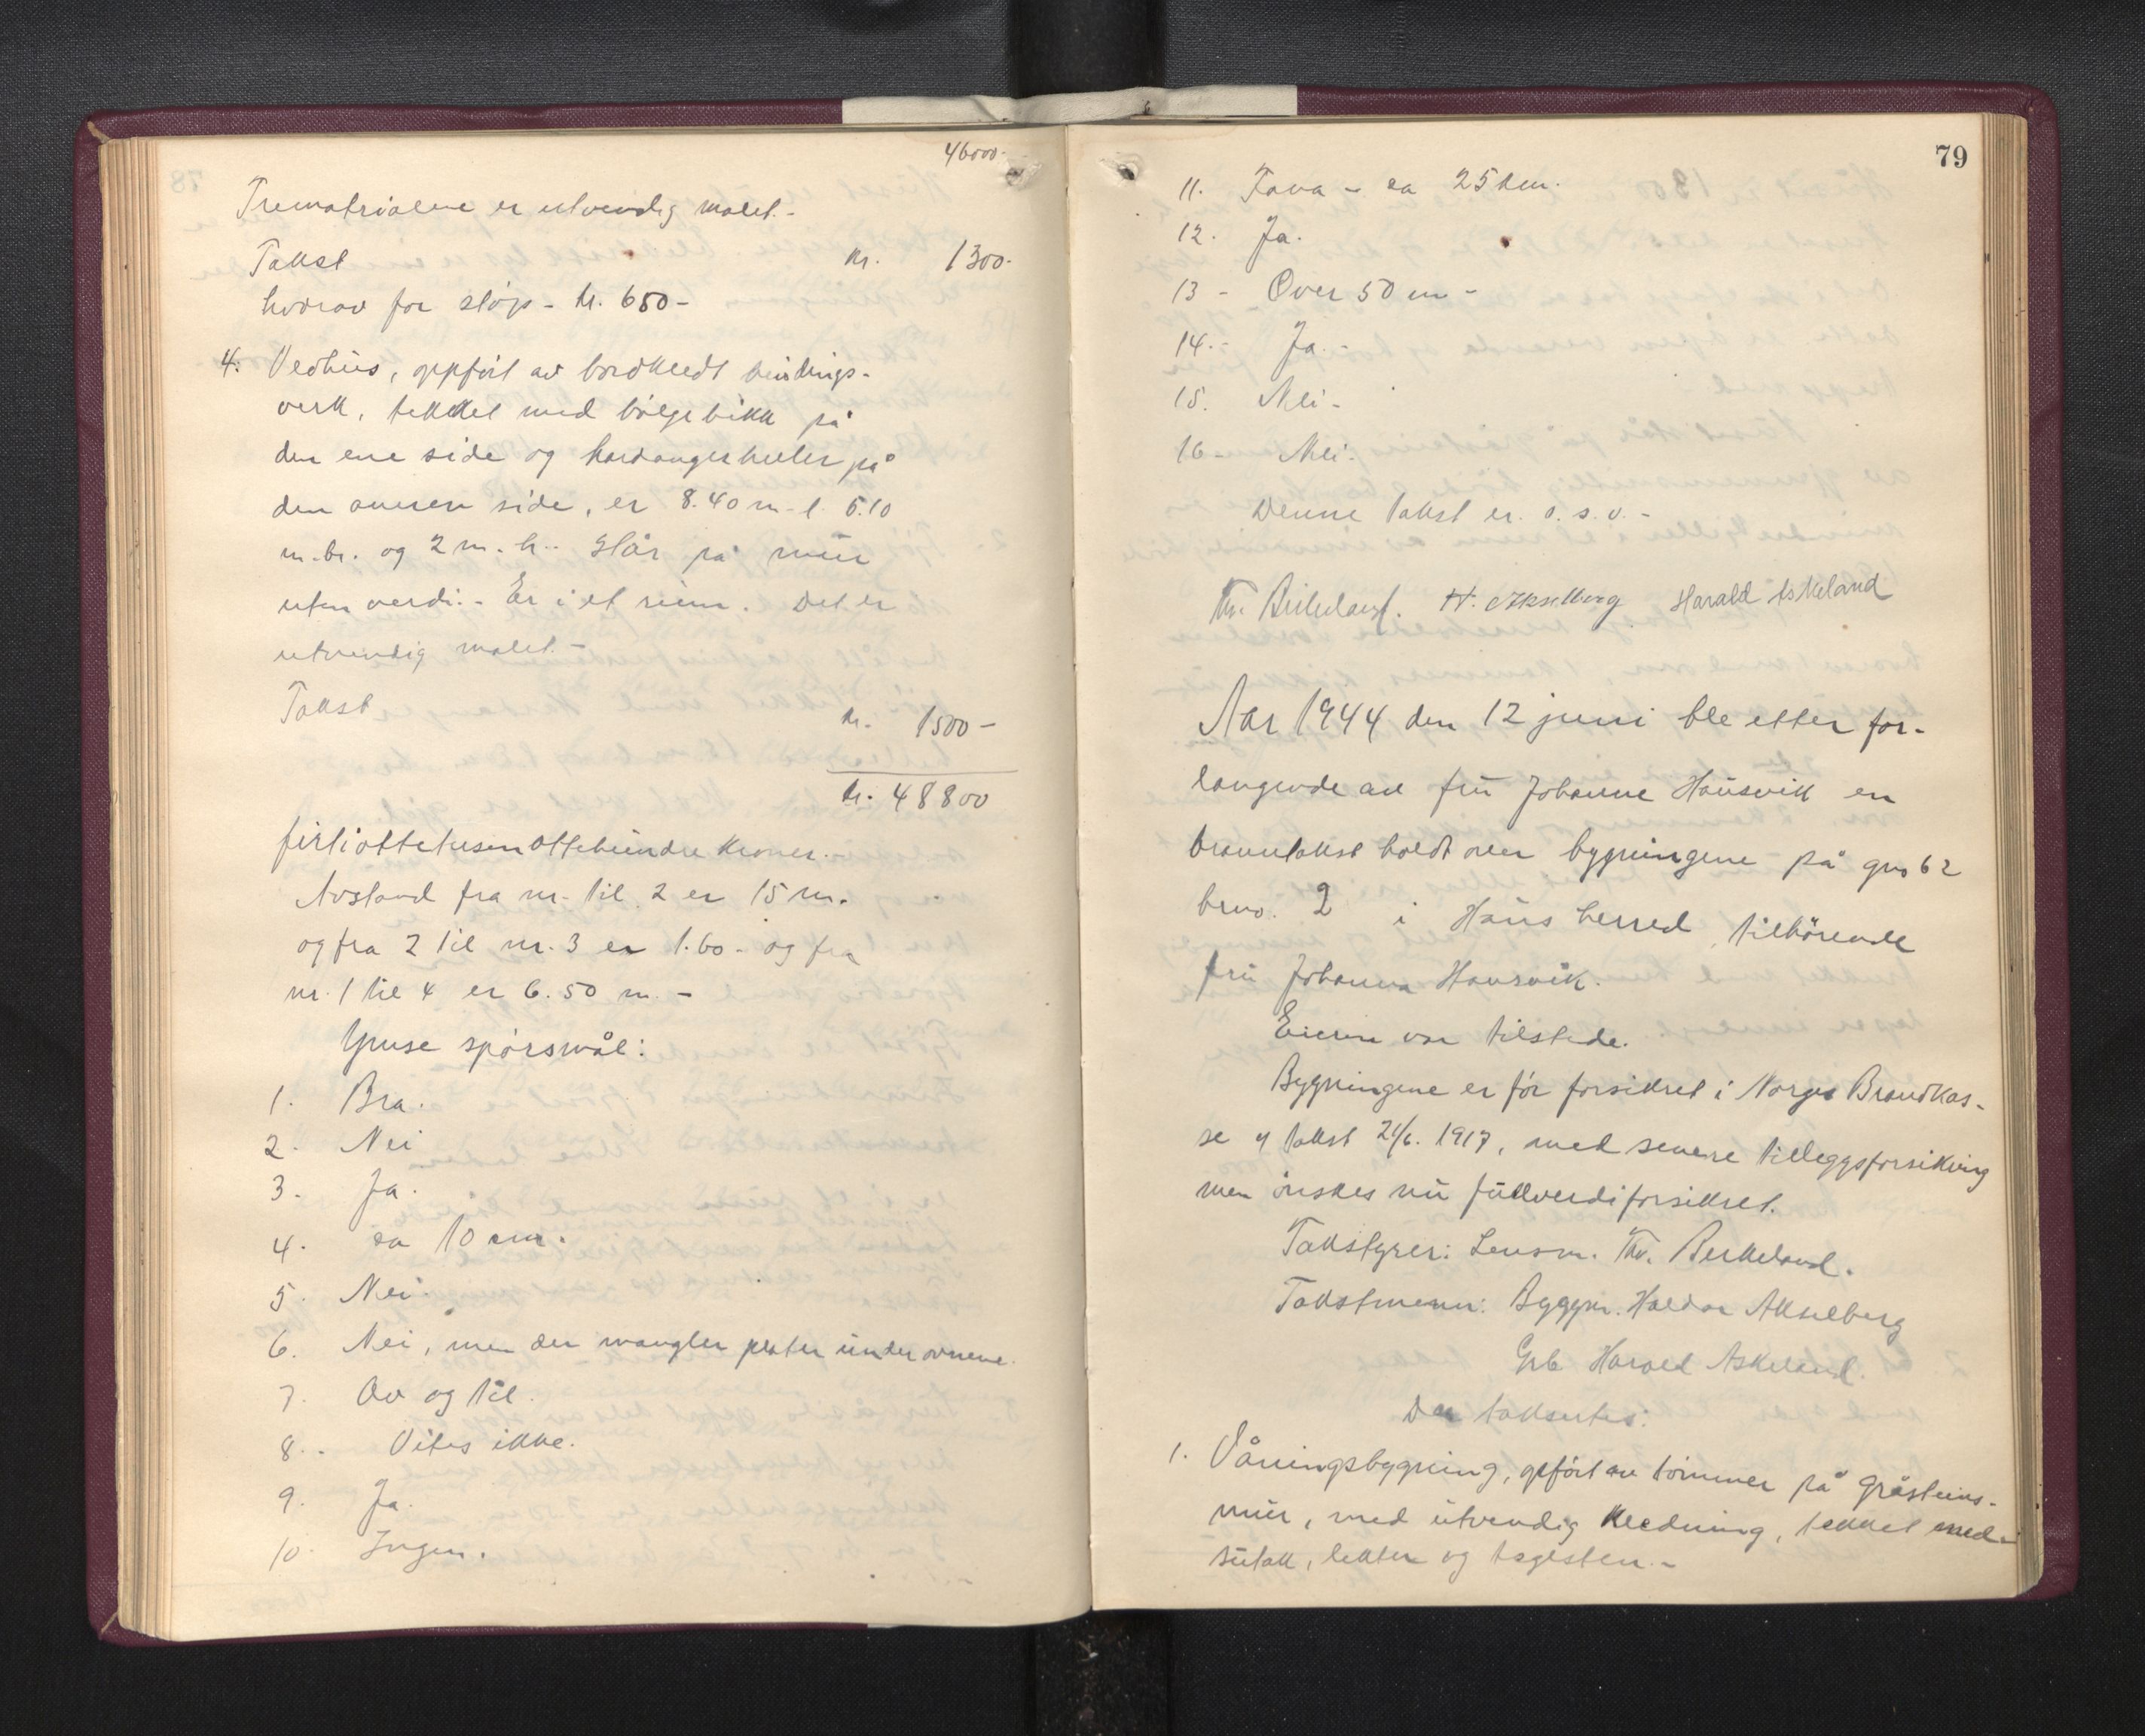 46000.-
Trematrialene er utvendig malet.-
Takst kr. 1300.-
hvorav for sløjs - kr. 650 -
4. Vedhus, oppført av bordkledt bindings-
verk, tekket med bølgeblikk på
den ene side og hardangerheller på
den annen side, er 8.40 m. l. 5.10
m. br. og 2 m. h.. Står på mur
uten verdi.- Er i et rum. Det er
utvendig malet.-
Takst kr. 1500 -
kr. 48800
førtiåttetusenåttehundre kroner.-
Avstand fra nr. til 2 er 15 m.
og fra 2 til nr. 3 er 1.60 - og fra
nr. 1 til 4 er 6.50 m. -
Ymse spørsmål:
1. Bra.
2. Nei
3. Ja.
4. ca 10 cm.
5. Nei.
6. Nei, men der mangler plater under ovnene.
7. Av og til.
8. Vites ikke.
9. Ja.
10. Ingen.
79
11. Fana - ca 25 km.
12. Ja.
13 - Over 50 m -
14.- Ja.-
15. Nei -
16 - Nei.
Denne takst er. o. s. v. -
Thv. Birkeland. H. Akselberg Harald Askeland
Aar 1944 den 12 juni ble etter for-
langende av fru Johanne Hausvik en
branntakst holdt over bygningene på gno 62
bruno. 2 i Haus herred, tilhørende
fru Johanna Hausvik.
Eieren var tilstede.
Bygningene er før forsikret i Norges Brandkas-
se ifl takst 21/6. 1917, med senere tilleggsforsikring
men ønskes nu fullverdiforsikret.
Takstyrer: Lensm. Thv. Birkeland.
Takstmenn: Byggm. Haldor Akselberg
Grb Harald Askeland.
Der taksertes:
1. Våningsbygning, opført av tømmer på gråsteins-
mur, med utvendig kledning, tekket med
sutak, lekter og taglsten.-